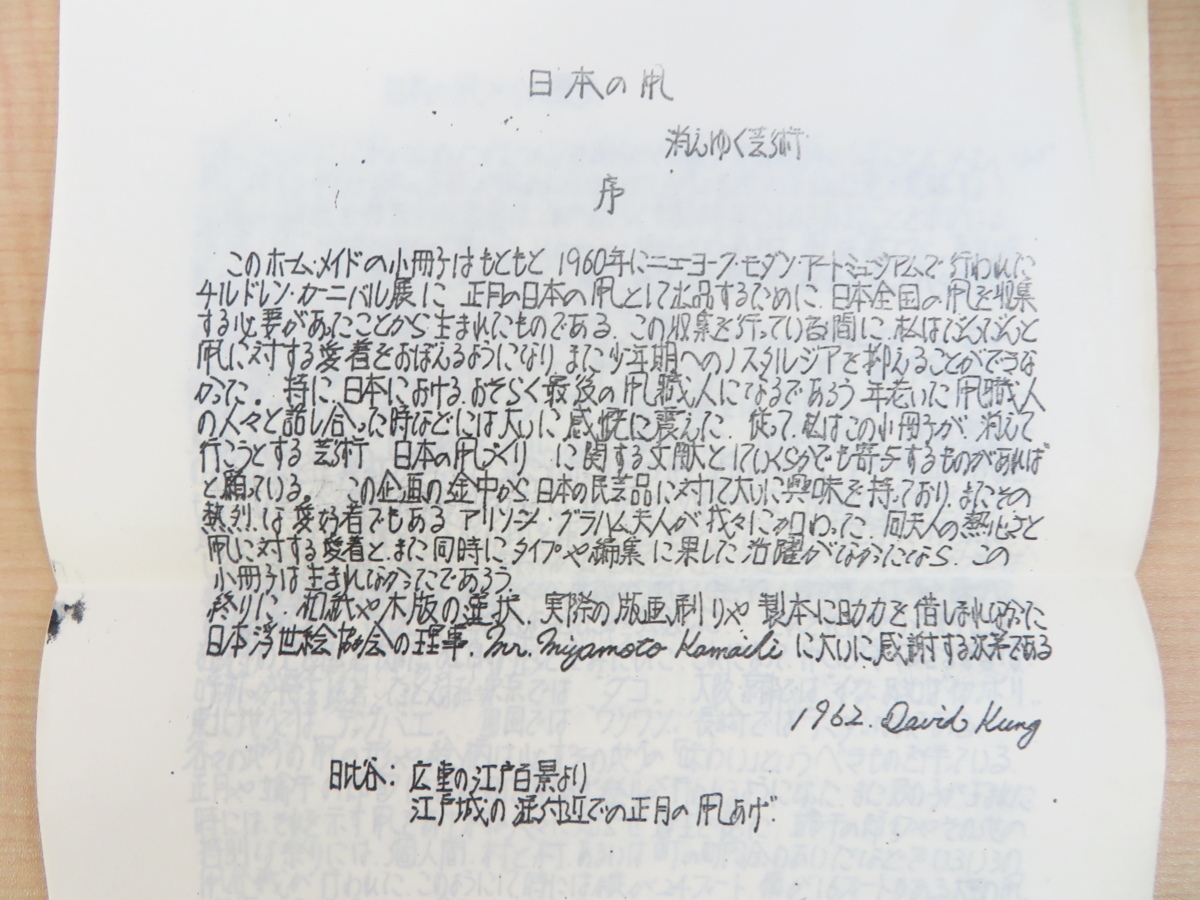 日本の凧
消えゆく芸術
序
このホーム・メイドの小冊子はもともと 1960年にニューヨーク・モダン・アートミュジアムで行われた
チルドレン・カーニバル展に 正月の日本の凧として出品するために、日本全国の凧を収集
する必要があったことから生まれたものである。この収集を行っている間に、私はだんだんと
凧に対する愛着をおぼえるようになり、また少年期へのノスタルジアを抑えることができな
かった。特に、日本における おそらく最後の凧職人になるであろう 年老いた凧職人
の人々と話し合った時などには大いに感慨に震えた。従って、私はこの小冊子が、消えて
行こうとする芸術 日本の凧づくり に関する文献としていくらかでも寄与するものがあれば
と願っている。この企画の途中から、日本の民芸品に対して大いに興味を持っており、またその
熱烈な愛好者でもある アリソーン・グラハム夫人が我々に加わった。同夫人の熱心さと
凧に対する愛着と、また同時にタイプや編集に果した活躍がなかったなら、この
小冊子は生まれなかったであろう。
終りに、和紙や木版の 実際の版画刷りや製本に助力を惜しまれなかった
日本浮世絵協会の理事、Mr. Miyamoto に大いに感謝する次第である
1962. David Kung
日比谷: 広重の江戸百景より
江戸城の濠付近での正月の凧あげ.